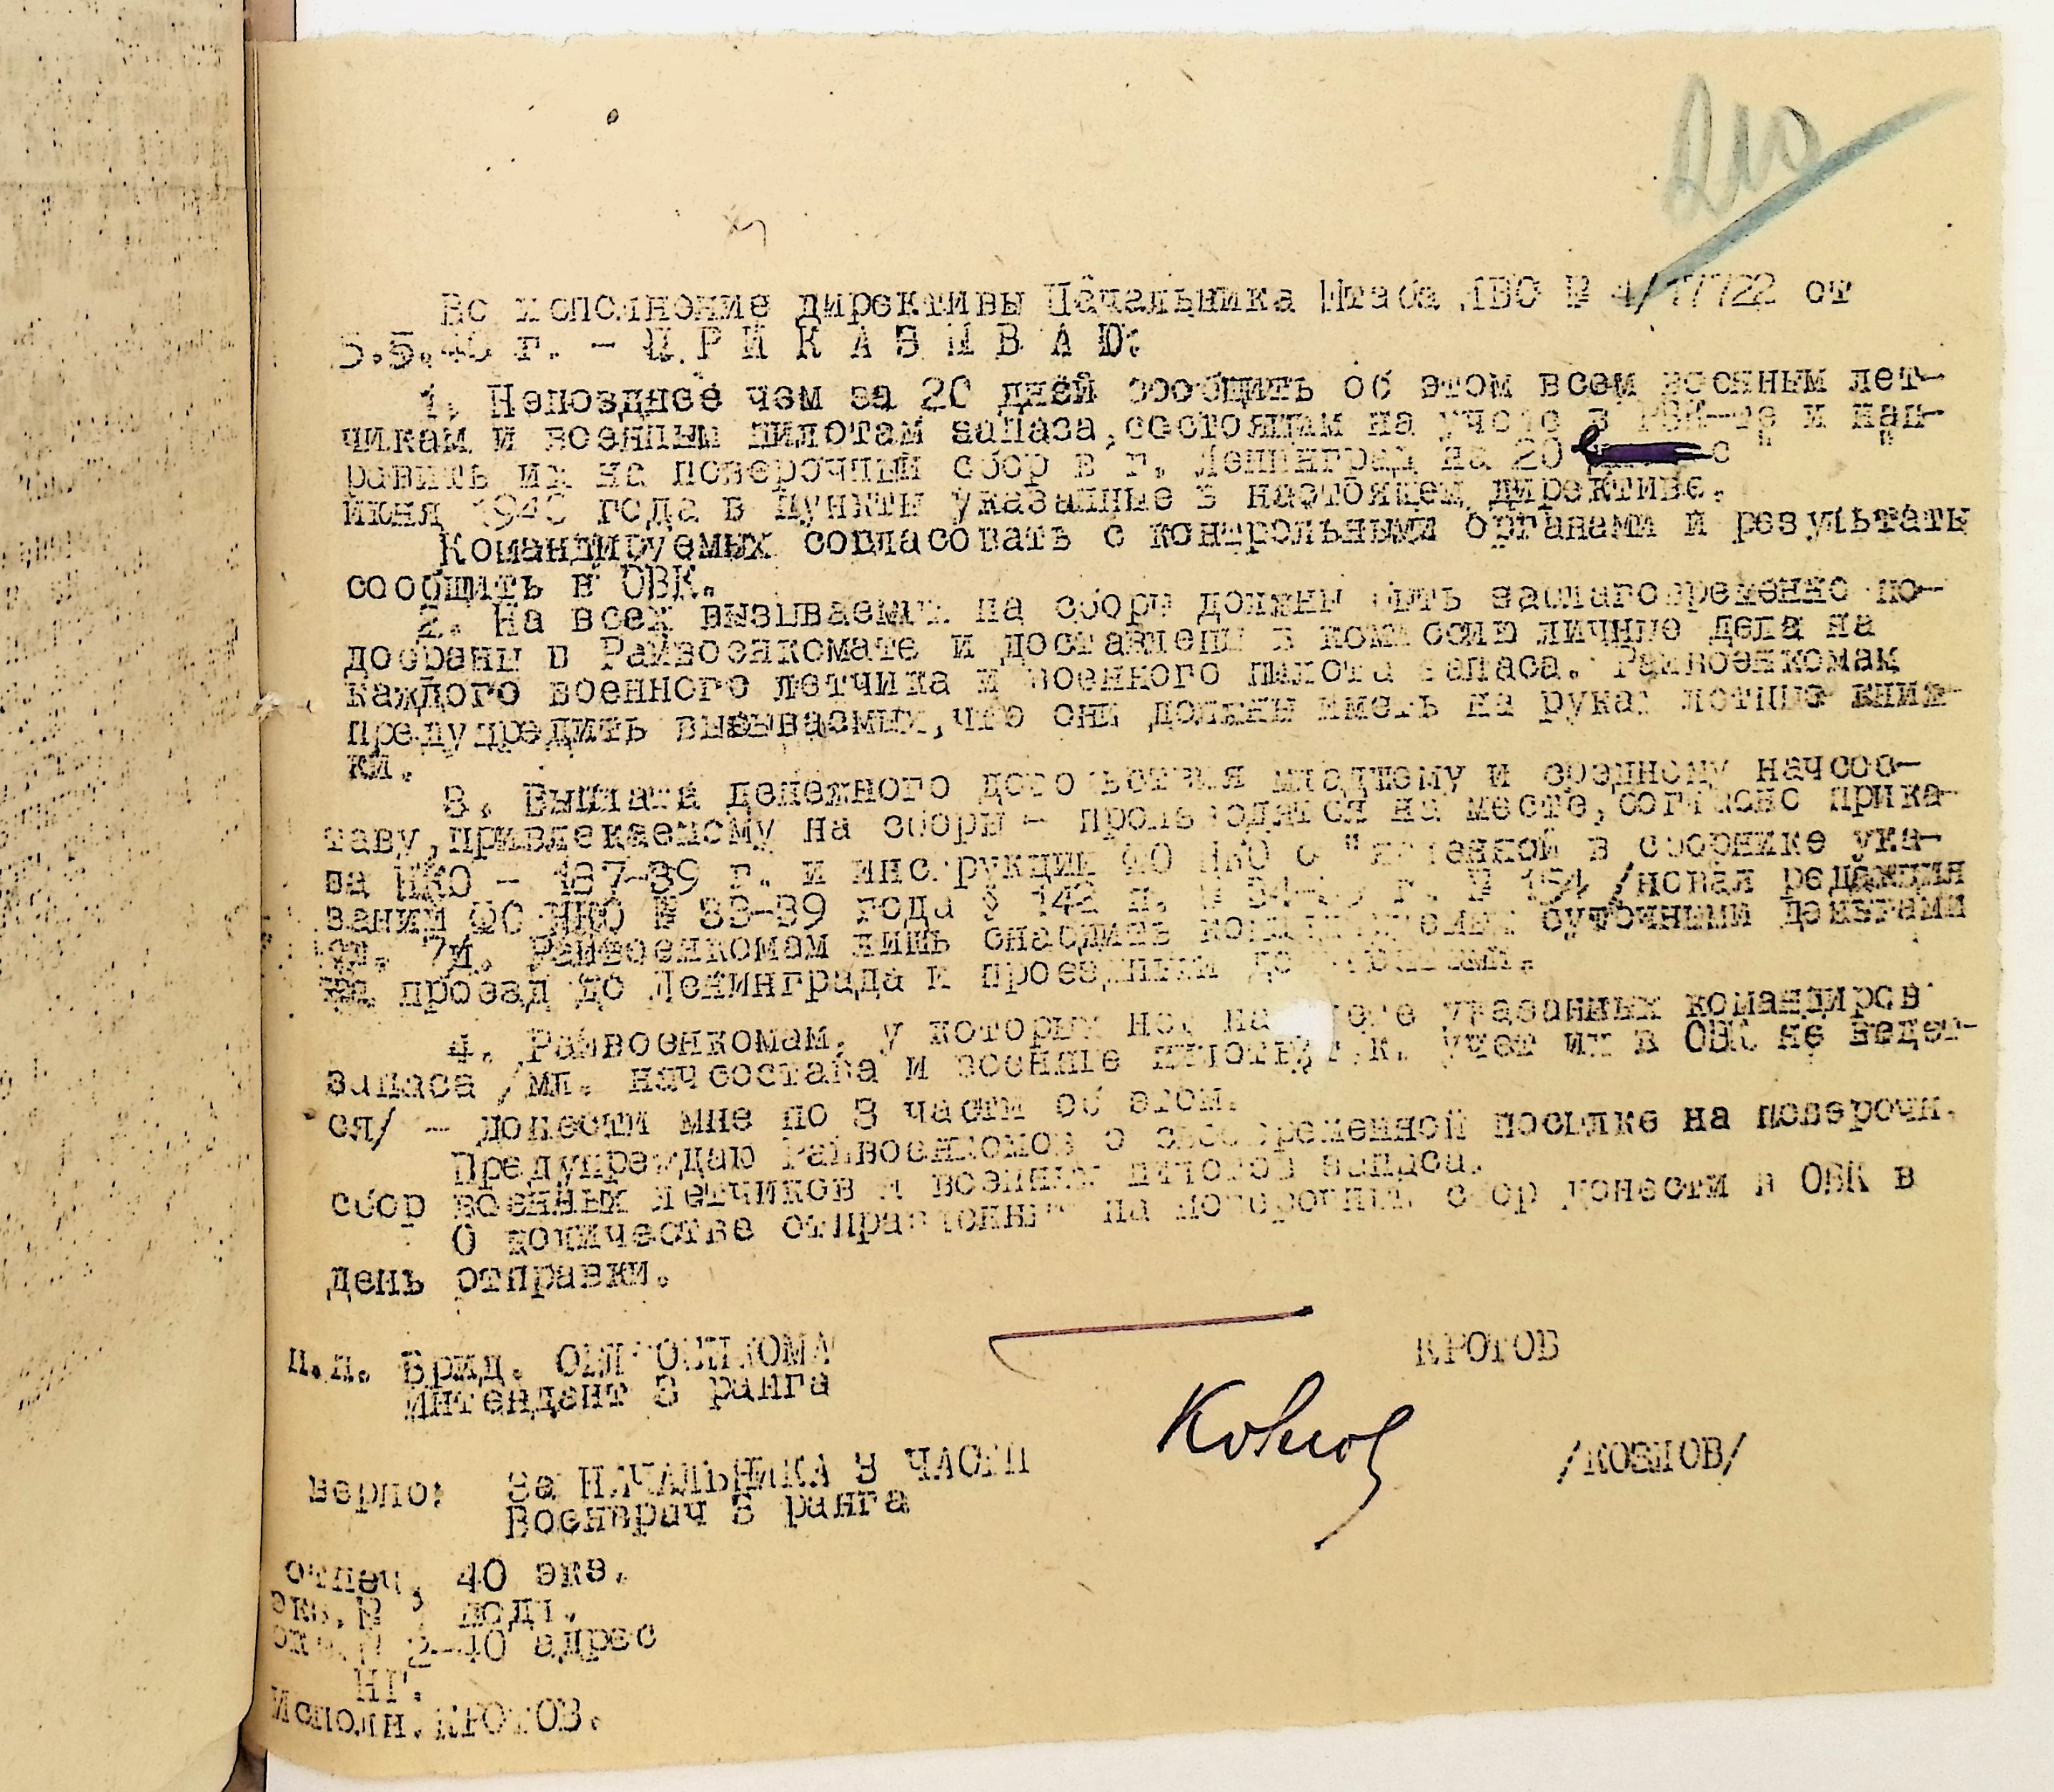 210
Во исполнение директивы Начальника Штаба ЛВО № 4/17722 от
5.5.40 г. - П Р И К А З Ы В А Ю:
1. Непозднее чем за 20 дней сообщить об этом всем военным лет-
чикам и военным пилотам запаса, состоящим на учете в РВК-те и нап-
равить их на поверочный сбор в г. Ленинград на 20
июня 1940 года в пункты указанные в настоящей директиве.
Командируемых согласовать с контрольными органами и результаты
сообщить в ОВК.
2. На всех вызываемых на сборы должны быть заблаговременно по-
добраны в Райвоенкомате и доставлены в комиссию личные дела на
каждого военного летчика и военного пилота запаса. Райвоенкомам
предупредить вызываемых, что они должны иметь на руках летные книж-
ки.
3. Выплата денежного довольствия младшему и среднему начсос-
таву, привлекаемому на сборы - производится на месте, согласно прика-
за НКО - 137-39 г. и инструкции ФО НКО в сборнике ука-
заний ФО НКО № 33-39 года § 142 г. № 154 /новая редакция
ст. 7/. Райвоенкомам лишь снабдить командируемых суточными деньгами
на проезд до Ленинграда и проездными документами.
4. Райвоенкомам, у которых нет на учете указанных командиров
запаса /мл. начсостава и военные пилоты т.к. учет их в ОВК не ведет-
ся/ - донести мне по 3 части об этом.
Предупреждаю Райвоенкомов о своевременной посылке на поверочн.
сбор военных летчиков и военных пилотов запаса.
О количестве отправленных на поверочный сбор донести в ОВК в
день отправки.
п.п. Врид. ОБЛВОЕНКОМА
Интендант 3 ранга
КРОТОВ
верно: За НАЧАЛЬНИКА 3 ЧАСТИ
Военврач 3 ранга
Козлов
/КОЗЛОВ/
отпеч. 40 экз.
экз. № 1 подл.
экз. № 2-40 адрес
НГ.
Исполн. КРОТОВ.